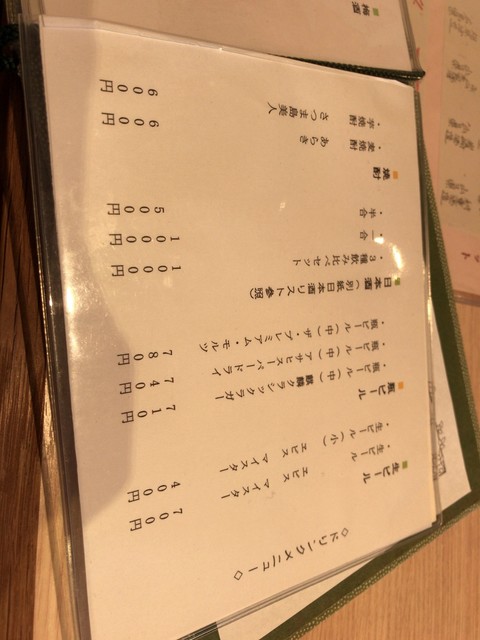 ◇ドリンクメニュー◇
■生ビール
・生ビール エビス マイスター 700円
・生ビール（小） エビス マイスター 400円
■瓶ビール
・瓶ビール（中）麒麟クラシックラガー 710円
・瓶ビール（中）アサヒスーパードライ 740円
・瓶ビール（中）ザ・プレミアム・モルツ 780円
■日本酒（別紙日本酒リスト参照）
・3種飲み比べセット 1000円
・一合 1000円
・半合 500円
■焼酎
・麦焼酎 あらき 600円
・芋焼酎 さつま島美人 600円
■梅酒